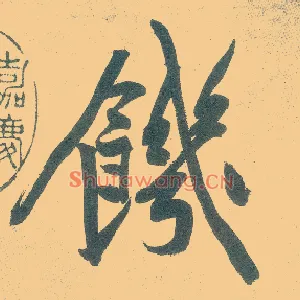 饑
嘉慶
Shufawang.CN